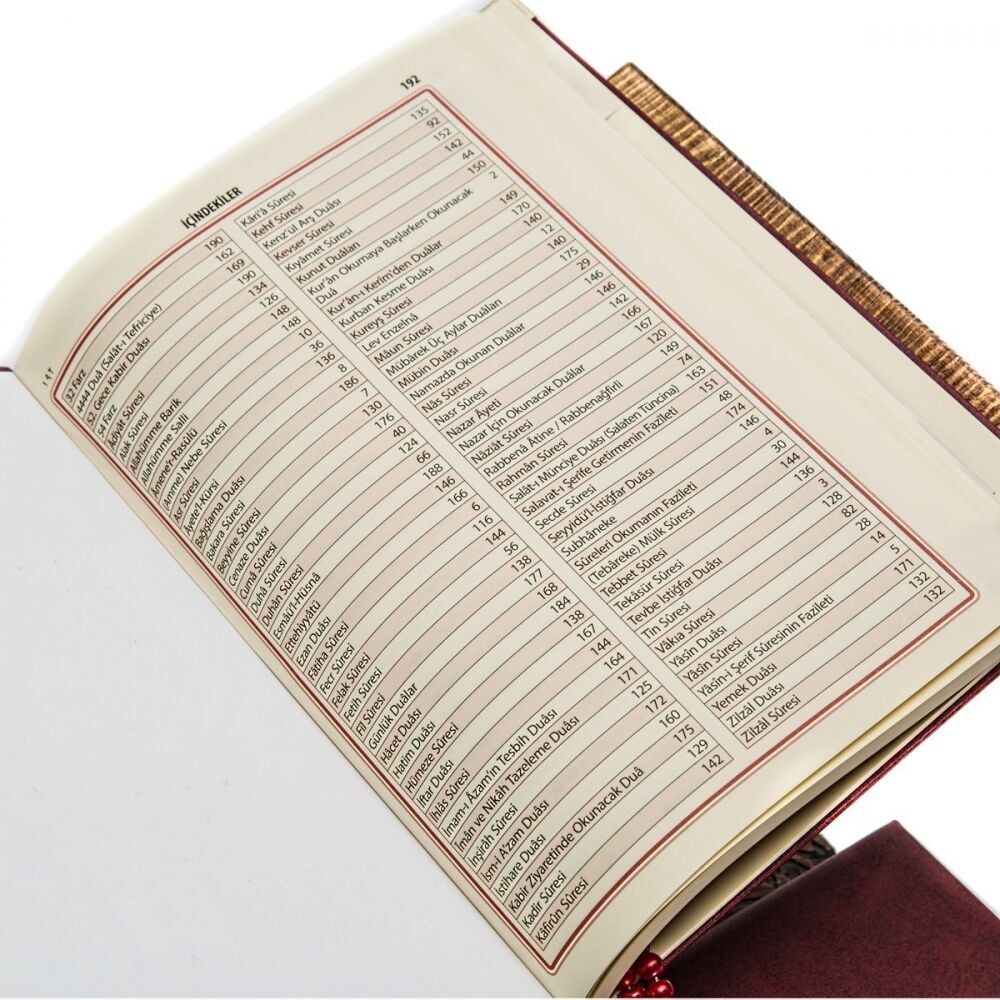 192
İÇİNDEKİLER
32 Farz 190
4444 Duâ (Salât-ı Tefriciye) 162
52. Gece Kabir Duâsı 169
54 Farz 190
Âdiyât Sûresi 134
Alak Sûresi 126
Allahümme Barik 148
Allahümme Salli 148
Âmene'r-Rasûlü 10
(Amme) Nebe Sûresi 36
Asr Sûresi 136
Âyete'l-Kürsi 8
Bağışlama Duâsı 186
Bakara Sûresi 7
Beyyine Sûresi 130
Cenaze Duâsı 176
Cumâ Sûresi 40
Duhâ Sûresi 124
Duhân Sûresi 66
Esmâü'l-Hüsnâ 188
Ettehiyyâtü 146
Ezan Duâsı 166
Fâtiha Sûresi 6
Fecr Sûresi 116
Felak Sûresi 144
Feth Sûresi 56
Fil Sûresi 138
Günlük Duâlar 177
Hâcet Duâsı 168
Hatim Duâsı 184
Hümeze Sûresi 138
İftar Duâsı 167
İhlâs Sûresi 144
İmam-ı Âzam'ın Tesbih Duâsı 164
Îmân ve Nikâh Tazeleme Duâsı 171
İnşirâh Sûresi 125
İsm-i A'zam Duâsı 172
İstihare Duâsı 160
Kabir Ziyaretinde Okunacak Duâ 175
Kadir Sûresi 129
Kâfirûn Sûresi 142
Kâri'â Sûresi 135
Kehf Sûresi 92
Kenz'ül Arş Duâsı 152
Kevser Sûresi 142
Kıyâmet Sûresi 44
Kunut Duâları 150
Kur'ân Okumaya Başlarken Okunacak
Duâ 2
Kur'ân-ı Kerim'den Duâlar 149
Kurban Kesme Duâsı 170
Kureyş Sûresi 140
Lev Enzelnâ 12
Mâun Sûresi 140
Mübârek Üç Aylar Duâları 175
Mübin Duâsı 29
Namazda Okunan Duâlar 146
Nâs Sûresi 146
Nasr Sûresi 142
Nazar Âyeti 166
Nazar İçin Okunacak Duâlar 167
Nâziât Sûresi 120
Rabbenâ Âtine / Rabbenağfirli 149
Rahmân Sûresi 74
Salât-ı Münciye Duâsı (Salaten Tüncina) 163
Salavat-ı Şerife Getirmenin Fazileti 151
Secde Sûresi 48
Seyyidü'l-İstiğfar Duâsı 174
Subhâneke 146
Sûreleri Okumanın Fazileti 4
(Tebâreke) Mülk Sûresi 30
Tebbet Sûresi 144
Tekâsür Sûresi 136
Tevbe İstiğfar Duâsı 3
Tin Sûresi 128
Vâkıa Sûresi 82
Yâsin Duâsı 28
Yâsin Sûresi 14
Yâsin-i Şerif Sûresinin Fazileti 5
Yemek Duâsı 171
Zilzâl Duâsı 132
Zilzâl Sûresi 132